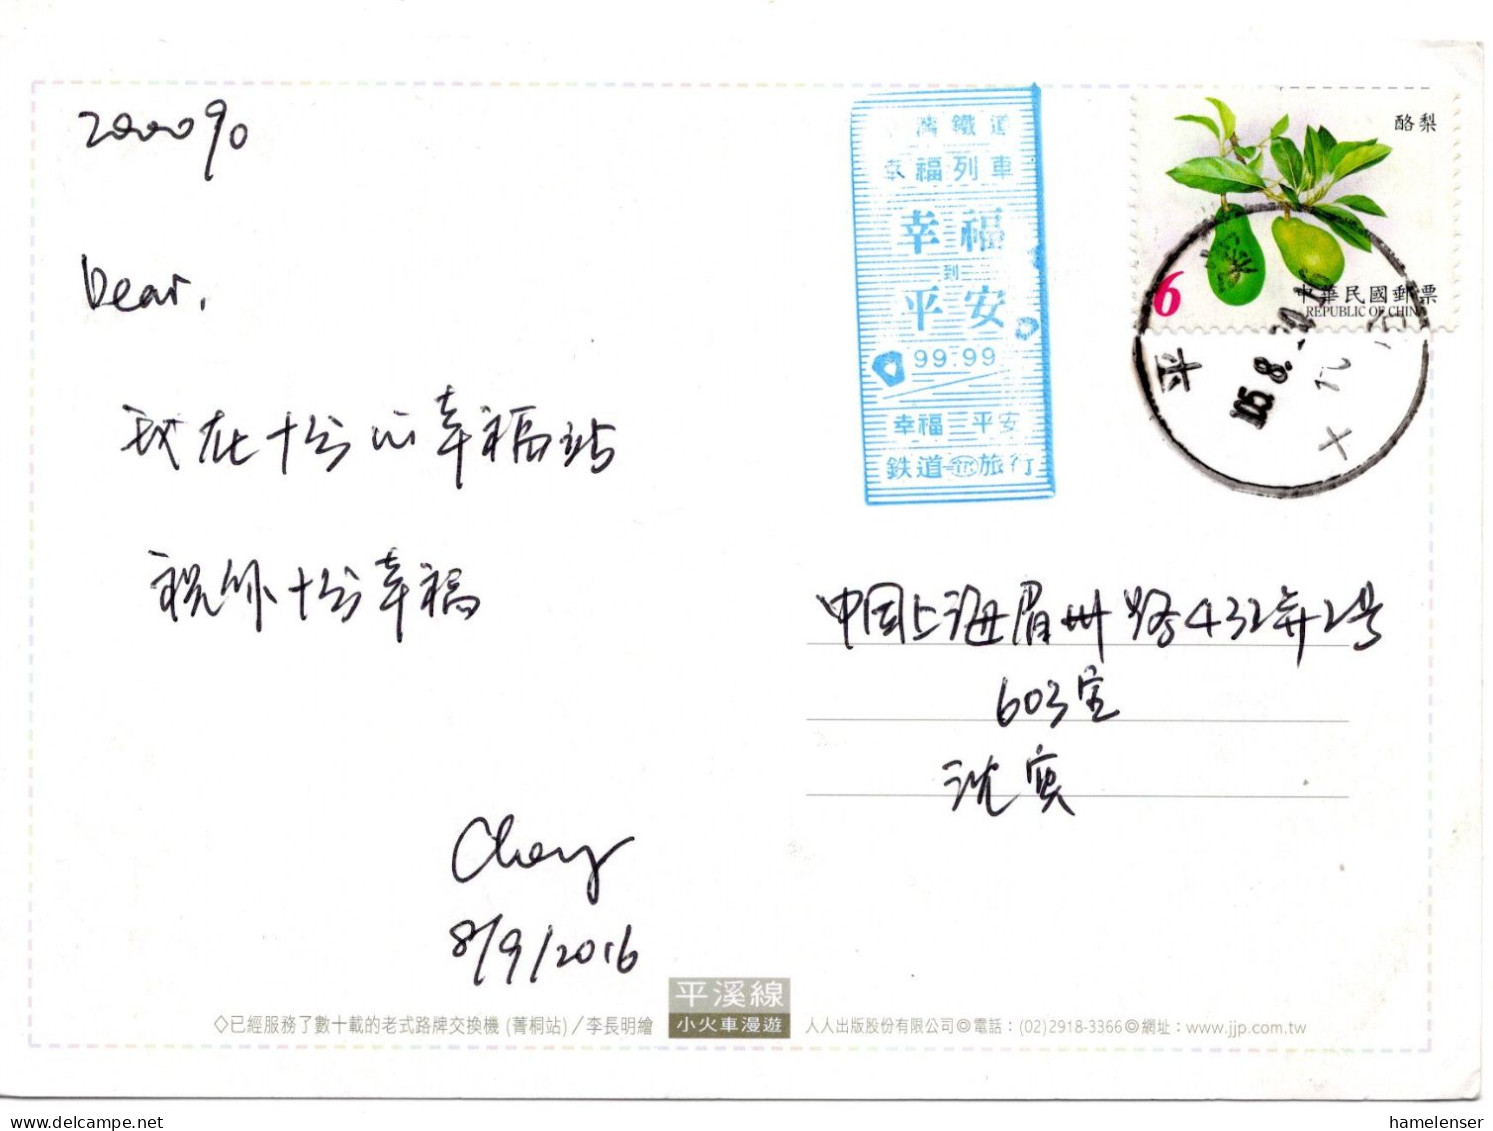 200090
Dear,
我在十分的幸福站
祝你十分幸福
Cheny
8/9/2016
灣鐵道
幸福列車
幸福
到
平安
99.99
幸福三平安
鉄道 旅行
酪梨
6
中華民國郵票
REPUBLIC OF CHINA
中国上海眉州路432弄2号
603室
沈寅
◇已經服務了數十載的老式路牌交換機 (菁桐站)／李長明繪
平溪線
小火車漫遊
人人出版股份有限公司◎電話：(02)2918-3366◎網址：www.jjp.com.tw
delcampe.net
hamelenser